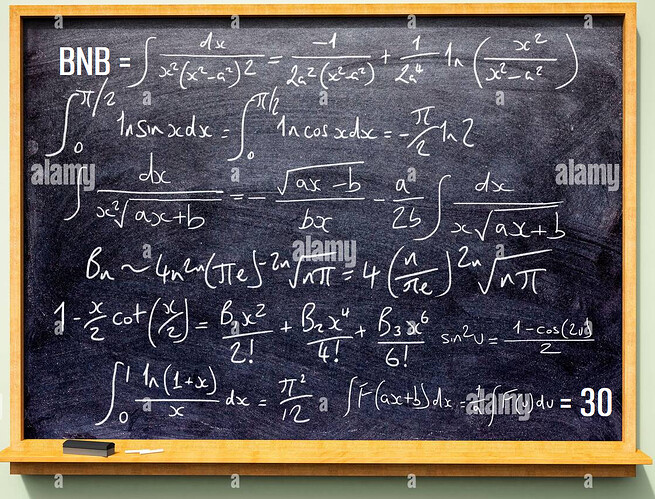 BNB = ∫ dx / x²(x²-a²)2 = -1 / 2a²(x²-a²) + 1 / 2a⁴ ln (x² / x²-a²)
∫₀^π/2 ln sin x dx = ∫₀^π/2 ln cos x dx = -π/2 ln 2
∫ dx / x²√(ax+b) = - √(ax-b) / bx - a/2b ∫ dx / x√(ax+b)
Bn ~ 4n²ⁿ(πe)⁻²ⁿ√(nπ) = 4 (n/πe)²ⁿ √(nπ)
1 - x/2 cot(x/2) = B₁x²/2! + B₂x⁴/4! + B₃x⁶/6! sin²u = 1-cos(2u) / 2
∫₀¹ ln(1+x) / x dx = π²/12 ∫F(ax+b)dx = 1/a ∫F(u)du = 30
alamy
alamy
alamy